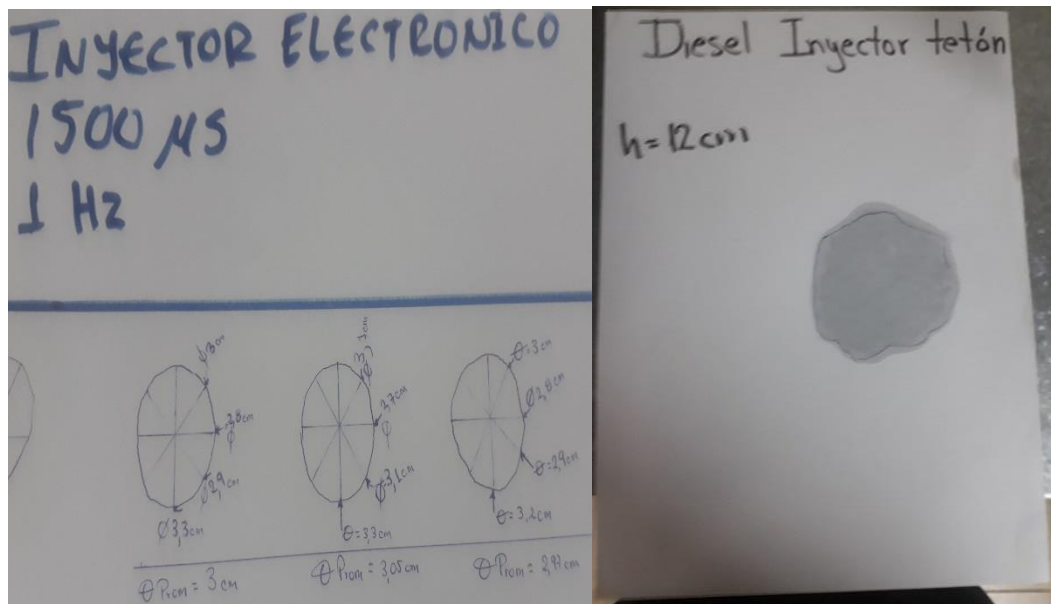 INYECTOR ELECTRONICO
1500 µS
1 Hz
Ø3cm
2,8cm
Ø
Ø2,9cm
Ø3,3cm
Ø Prom = 3 cm
3,1cm
Ø
2,7cm
Ø
Ø3,1cm
Ø=3,3cm
Ø Prom = 3,05cm
Ø=3cm
Ø2,8cm
Ø=2,9cm
Ø=3,2cm
Ø Prom = 2,97cm
Diesel Inyector tetón
h=12cm